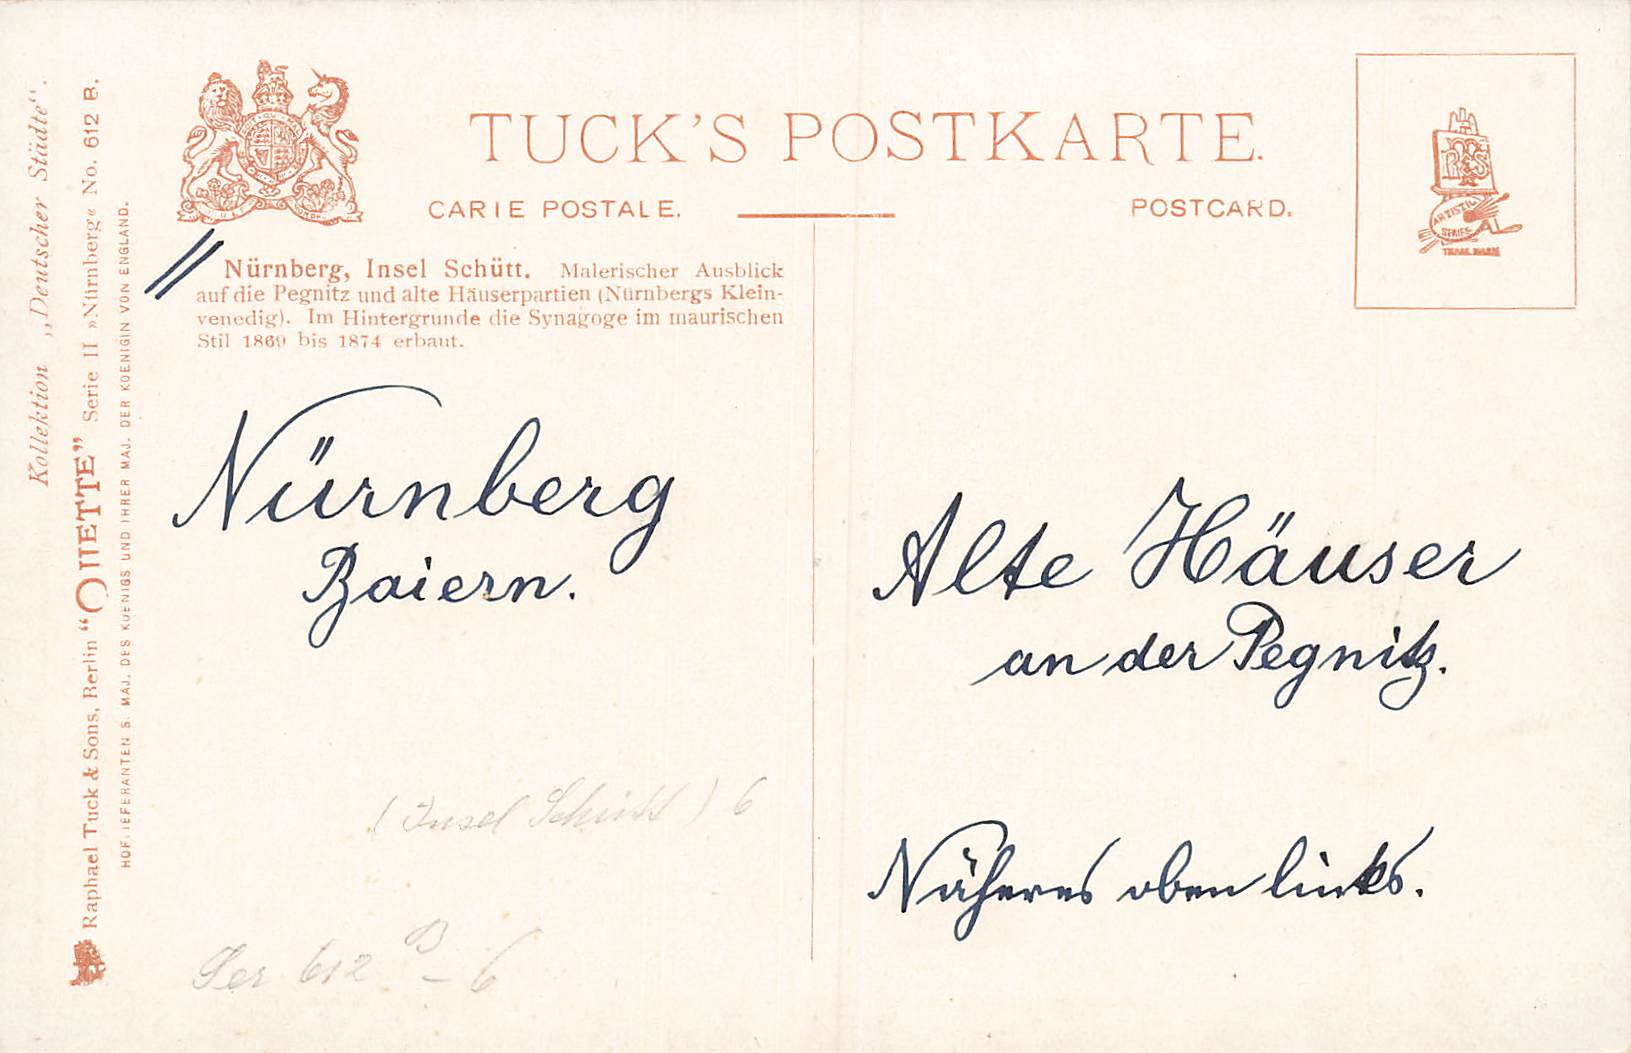 TUCK'S POSTKARTE.
CARTE POSTALE.
POSTCARD.
ARTISTIC
SERIES
TRADE MARK
Nürnberg, Insel Schütt. Malerischer Ausblick
auf die Pegnitz und alte Häuserpartien (Nürnbergs Klein-
venedig). Im Hintergrunde die Synagoge im maurischen
Stil 1869 bis 1874 erbaut.
Nürnberg
Baiern.
Alte Häuser
an der Pegnitz.
Näheres oben links.
(Insel Schütt) 6
Ser 612 B - 6
Kollektion „Deutscher Städte“.
Raphael Tuck & Sons, Berlin “OILETTE” Serie II »Nürnberg« No. 612 B.
HOFLIEFERANTEN S. MAJ. DES KOENIGS UND IHRER MAJ. DER KOENIGIN VON ENGLAND.